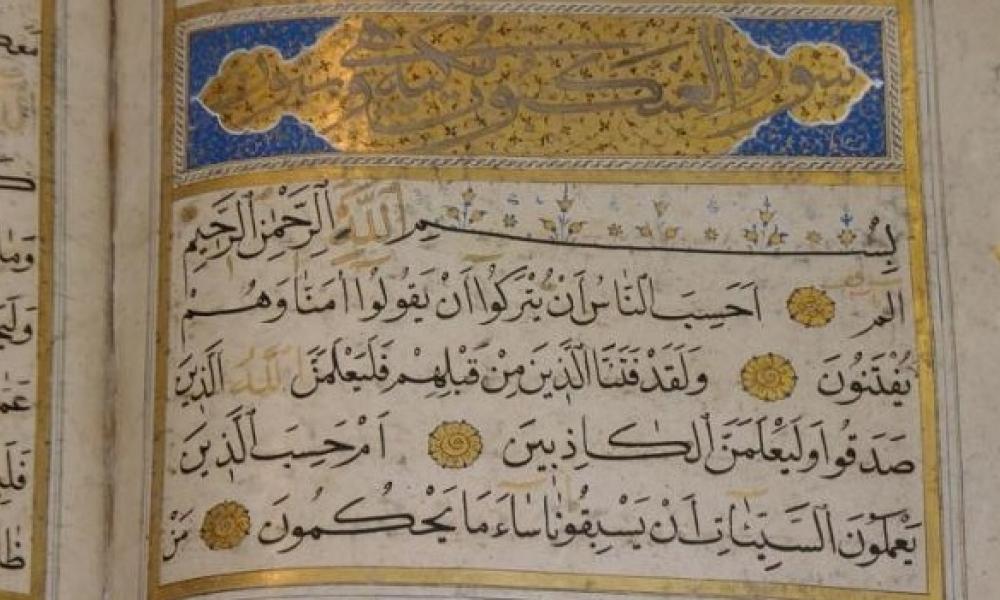 سورة العنكبوت مكية وهى
بسم الله الرحمن الرحيم
الم اَحَسِبَ النَّاسُ اَنْ يُتْرَكُوا اَنْ يَقُولُوا اٰمَنَّا وَهُمْ
يُفْتَنُونَ وَلَقَدْ فَتَنَّا الَّذِينَ مِنْ قَبْلِهِمْ فَلَيَعْلَمَنَّ اللّٰهُ الَّذِينَ
صَدَقُوا وَلَيَعْلَمَنَّ الْكَاذِبِينَ اَمْ حَسِبَ الَّذِينَ
يَعْمَلُونَ السَّيِّـَٔاتِ اَنْ يَسْبِقُونَا سَاءَ مَا يَحْكُمُونَ مَنْ